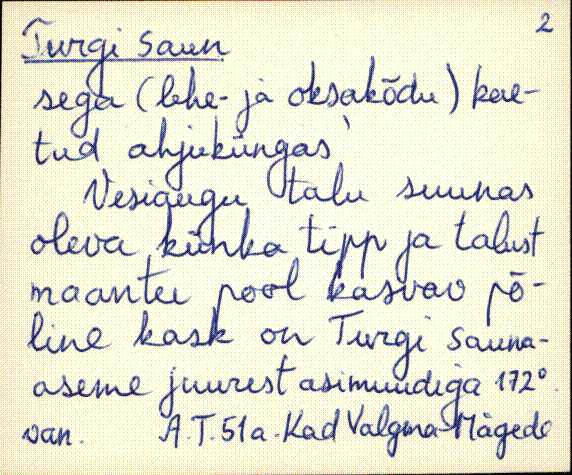 2
Turgi Saun
sega (lehe- ja oksakõdu) kae-
tud ahjuküngas
Vesiaugu talu suunas
oleva künka tipp ja talust
maantee pool kasvav põ-
line kask on Turgi sauna-
aseme juurest asimuudiga 172°.
van. A.T. 51 a. Kad Valgma-Mägede